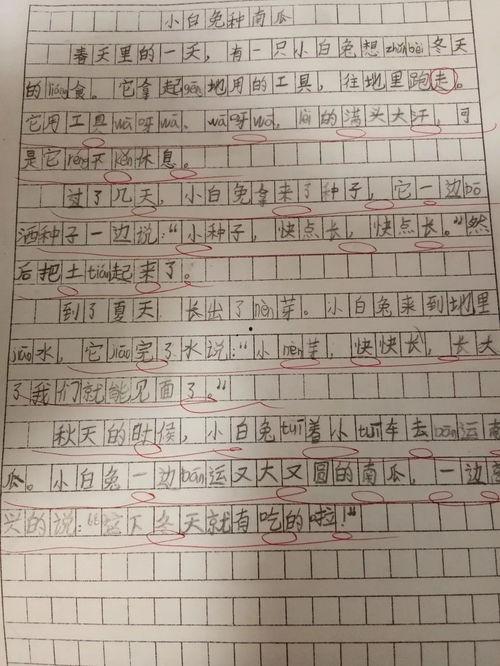 小白兔种南瓜
春天里的一天,有一只小白兔想zhǔnbèi冬天
的liáng食。它拿起gēng地用的工具,往地里跑走。
它用工具wā呀wā,wā呀wā,lèi的满头大汗,可
是它réng不kěn休息。
过了几天,小白兔拿来了种子,它一边bō
洒种子一边说:“小种子,快点长,快点长。”然
后把土tián起来了。
到了夏天 长出了nèn芽。小白兔来到地里
jiāo水,它jiāo完了水说:“小nèn芽,快快长,长大
了我们就能见面了。”
秋天的时候,小白兔tuī着小tuī车去bān运南
瓜。小白兔一边bān运又大又圆的南瓜,一边高
兴的说:“这下冬天就有吃的啦!”